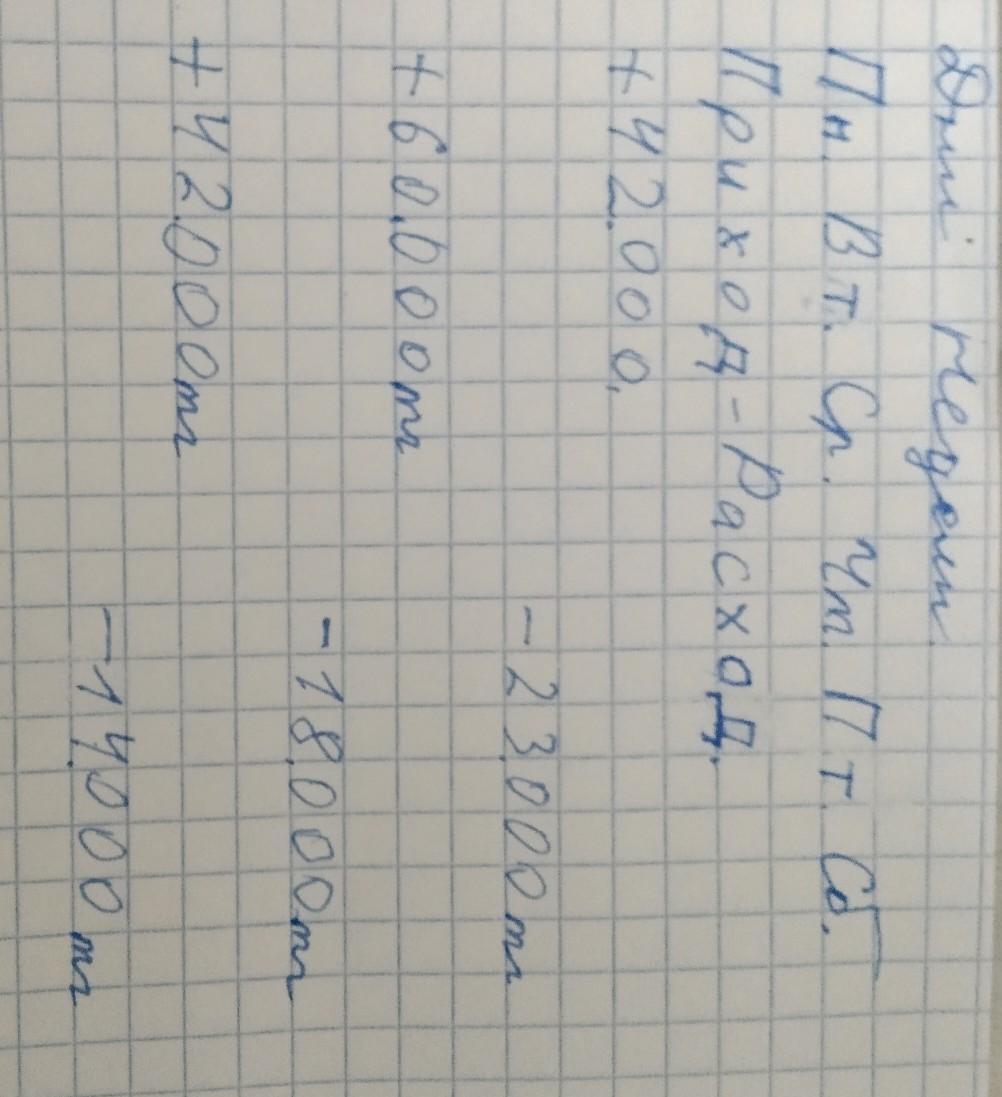 Дни недели.
Пн. Вт. Ср. Чт. Пт. Сб.
Приход-Расход.
+42.000.
-23.000тг
+60.000тг
-18.000тг
+42.000тг
-14.000тг